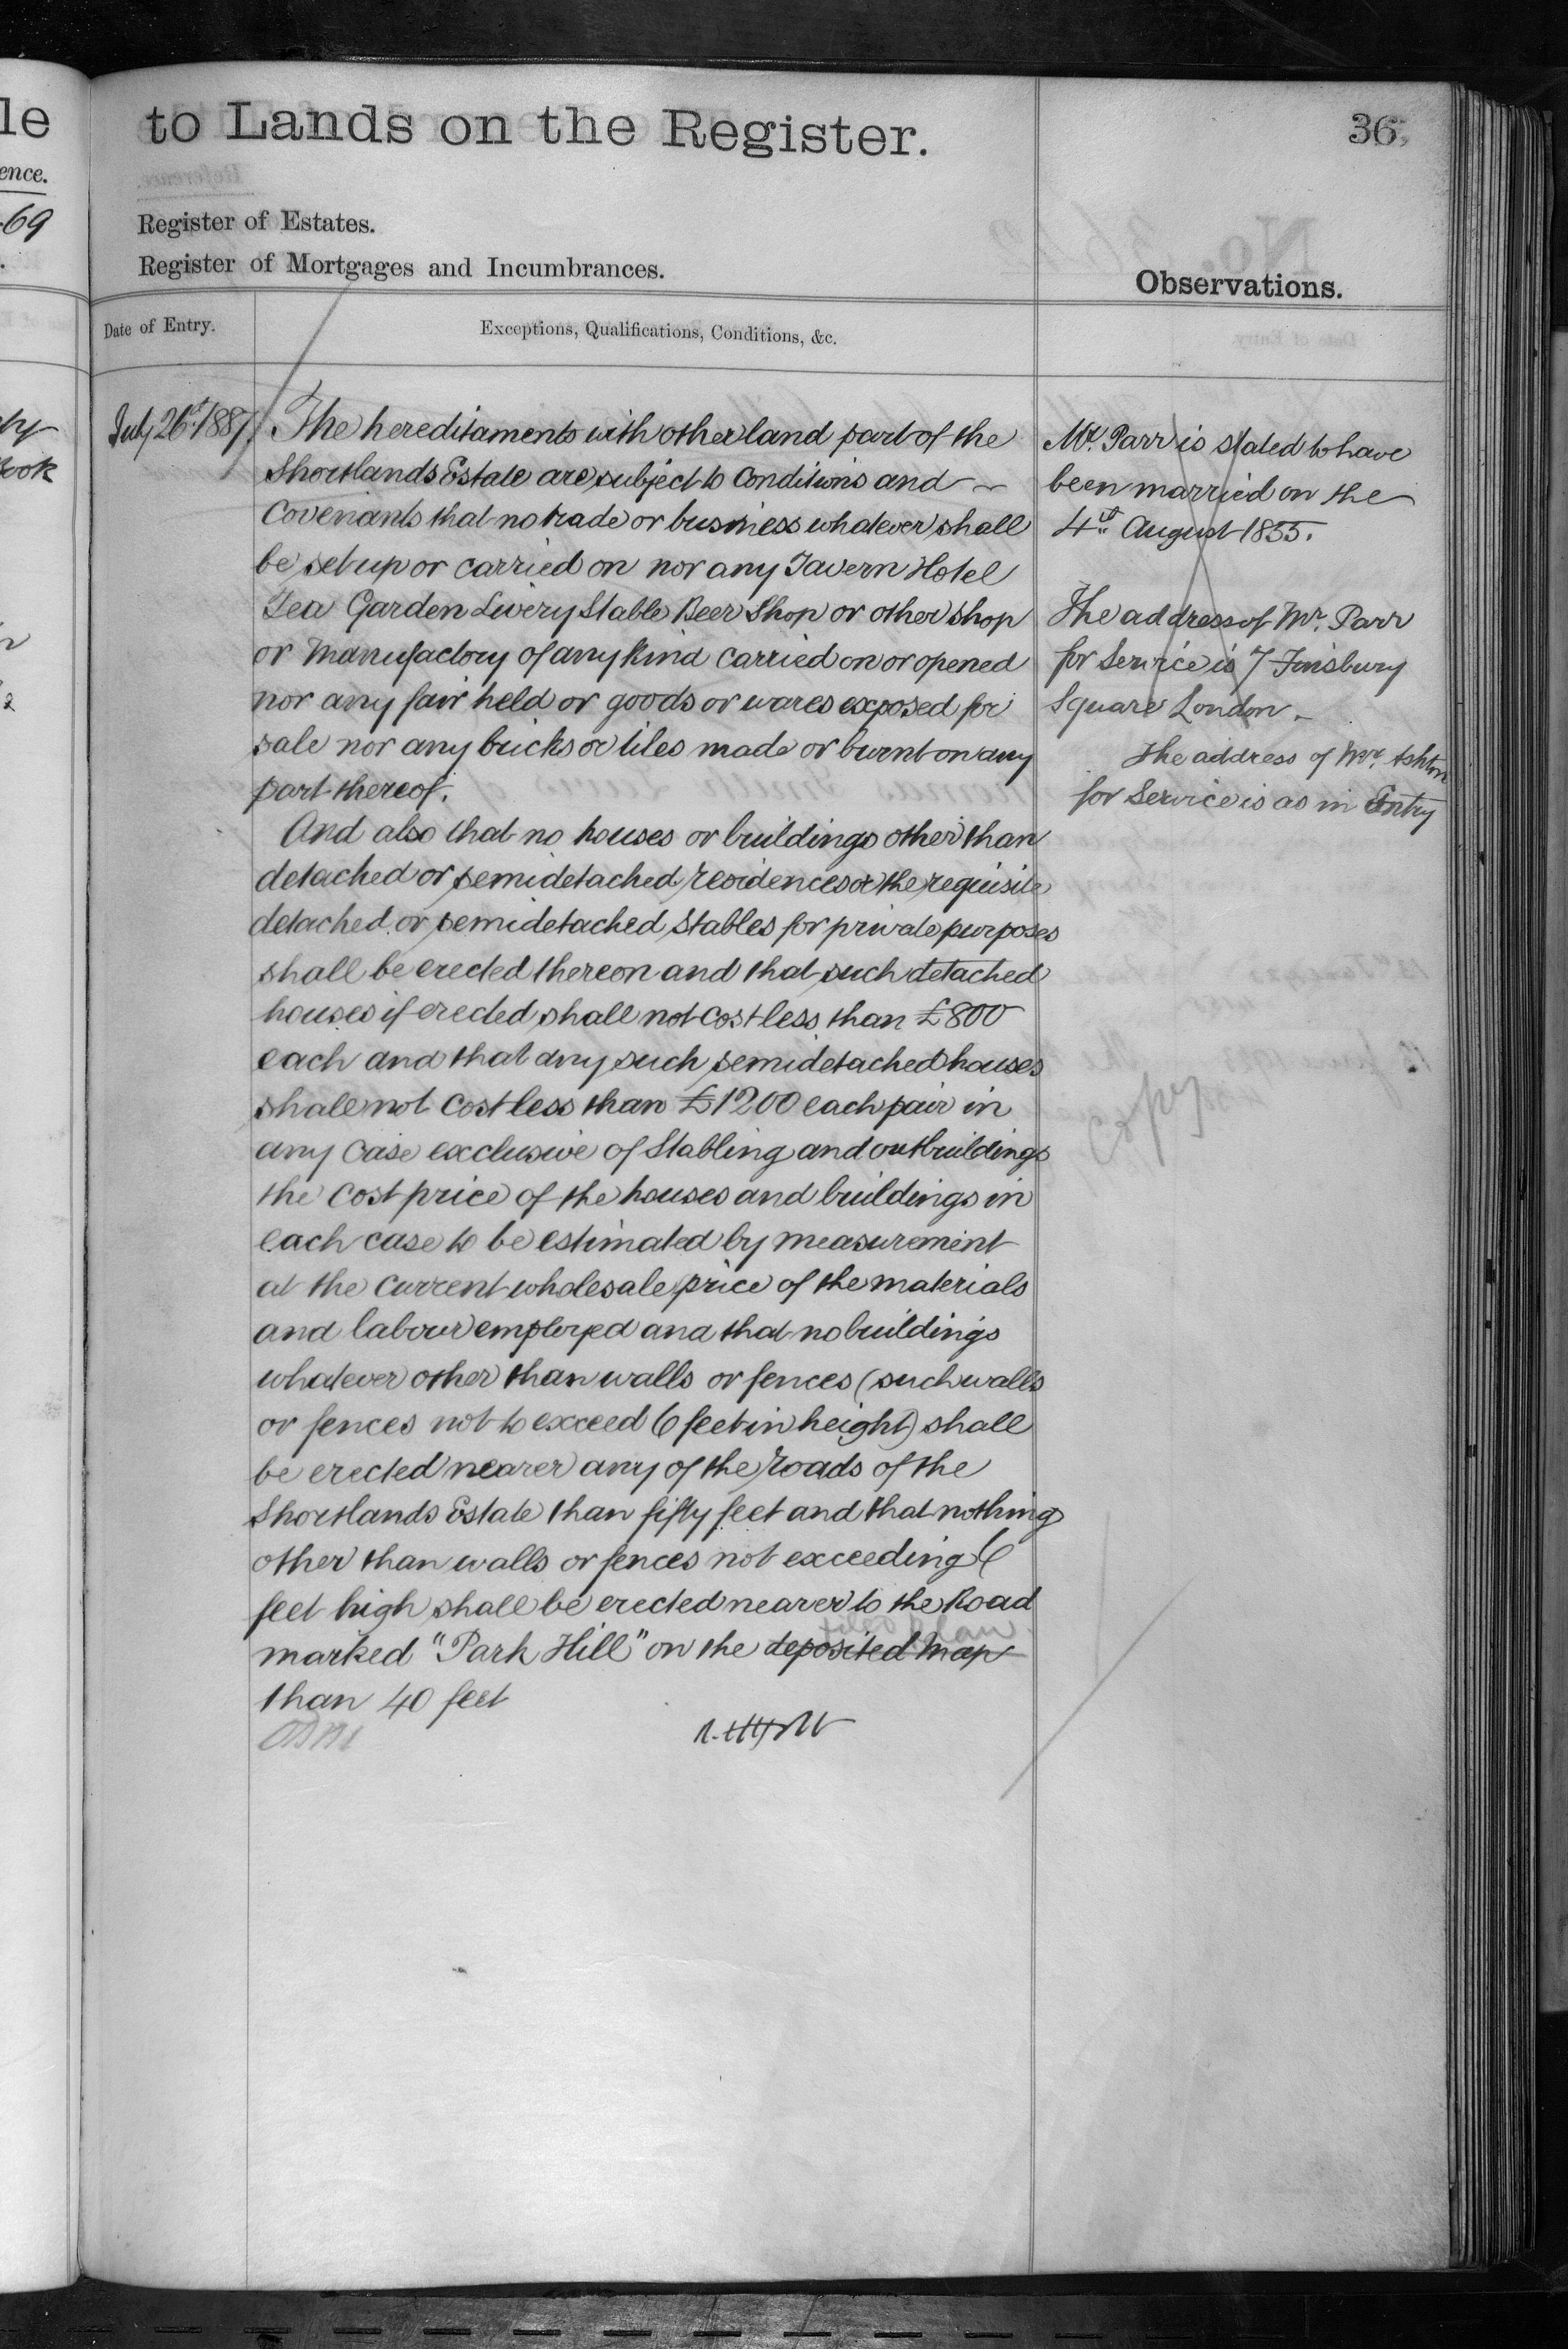 le
ence.
69
ook
to Lands on the Register.
36.
Register of Estates.
Register of Mortgages and Incumbrances.
Observations.
Date of Entry.
Exceptions, Qualifications, Conditions, &c.
July 26th 1887.
The hereditaments with other land part of the
Shortlands Estate are subject to Conditions and
Covenants that no trade or business whatever shall
be set up or carried on nor any Tavern Hotel
Tea Garden Livery Stable Beer Shop or other shop
or Manufactory of any kind carried on or opened
nor any fair held or goods or wares exposed for
sale nor any bricks or tiles made or burnt on any
part thereof.
And also that no houses or buildings other than
detached or semidetached residences or the requisite
detached or semidetached Stables for private purposes
shall be erected thereon and that such detached
houses if erected shall not cost less than £800
each and that any such semidetached houses
shall not cost less than £1200 each pair in
any case exclusive of Stabling and outbuildings
the cost price of the houses and buildings in
each case to be estimated by measurement
at the current wholesale price of the materials
and labour employed and that no buildings
whatever other than walls or fences (such walls
or fences not to exceed 6 feet in height) shall
be erected nearer any of the roads of the
Shortlands Estate than fifty feet and that nothing
other than walls or fences not exceeding 6
feet high shall be erected nearer to the Road
filed plan
marked "Park Hill" on the deposited Map
than 40 feet
Mr. Parr is stated to have
been married on the
4th August 1855.
The address of Mr. Parr
for Service is 7 Finsbury
Square London.
The address of Mr. Ashton
for Service is as in Entry